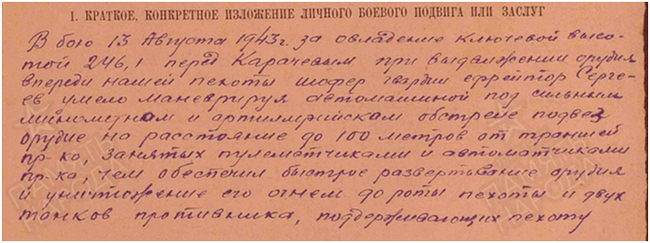 1. КРАТКОЕ, КОНКРЕТНОЕ ИЗЛОЖЕНИЕ ЛИЧНОГО БОЕВОГО ПОДВИГА ИЛИ ЗАСЛУГ
В бою 13 Августа 1943г. за овладение ключевой высо-
той 246,1 перед Карачевым при выдвижении орудия
впереди нашей пехоты шофер гвардии ефрейтор Серге-
ев умело маневрируя автомашиной под сильным
минометном и артиллерийском обстреле подвез
орудие на расстояние до 100 метров от траншей
пр-ка, занятых пулеметчиками и автоматчиками
пр-ка, чем обеспечил быстрое развертывание орудия
и уничтожение его огнем до роты пехоты и двух
танков противника, поддерживающих пехоту